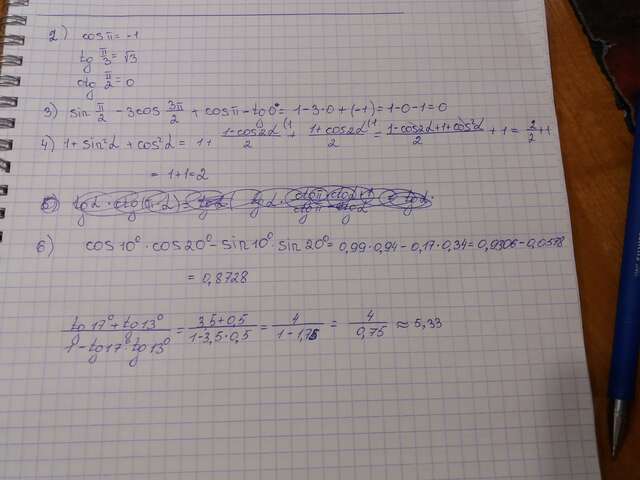 2) cos π = -1
tg π/3 = √3
ctg π/2 = 0
3) sin π/2 - 3cos 3π/2 + cos π - tg 0° = 1-3·0+(-1) = 1-0-1=0
4) 1 + sin²α + cos²α = 1+ (1-cos2α)/2 + (1+cos2α)/2 = (1-cos2α+1+cos²α)/2 + 1 = 2/2 + 1
= 1+1=2
5)
6) cos10°·cos20° - sin10°·sin20° = 0,99·0,94 - 0,17·0,34 = 0,9306 - 0,0578
= 0,8728
(tg17° + tg13°)/(1 - tg17°·tg13°) = (3,5+0,5)/(1-3,5·0,5) = 4/(1-1,75) = 4/0,75 ≈ 5,33